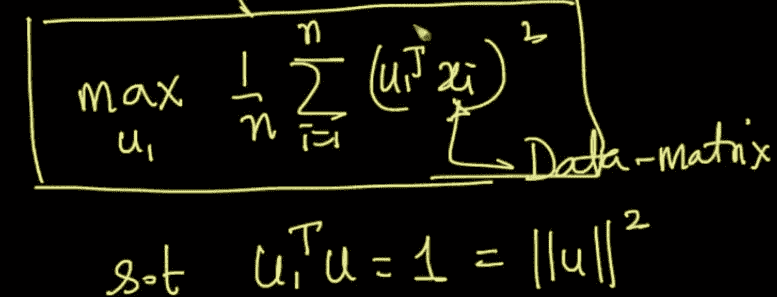 max_{u₁} 1/n Σ_{i=1}^{n} (u₁ᵀ xᵢ)²
Data-matrix
s.t u₁ᵀu = 1 = ||u||²